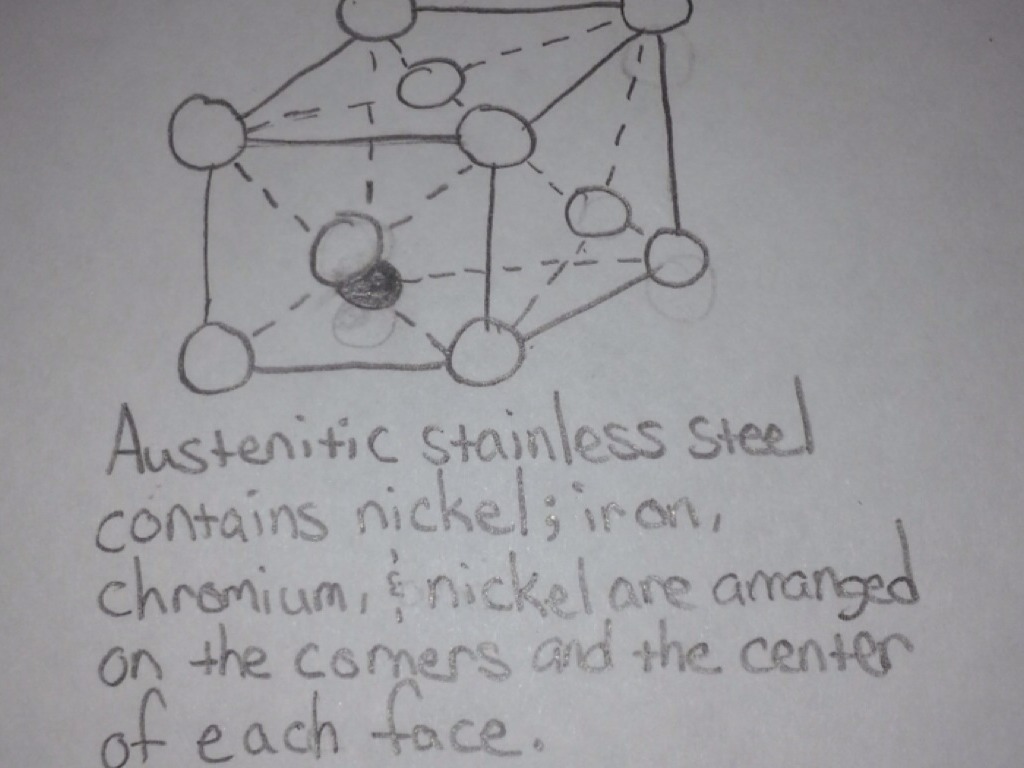 Austenitic stainless steel
contains nickel; iron,
chromium, & nickel are arranged
on the corners and the center
of each face.